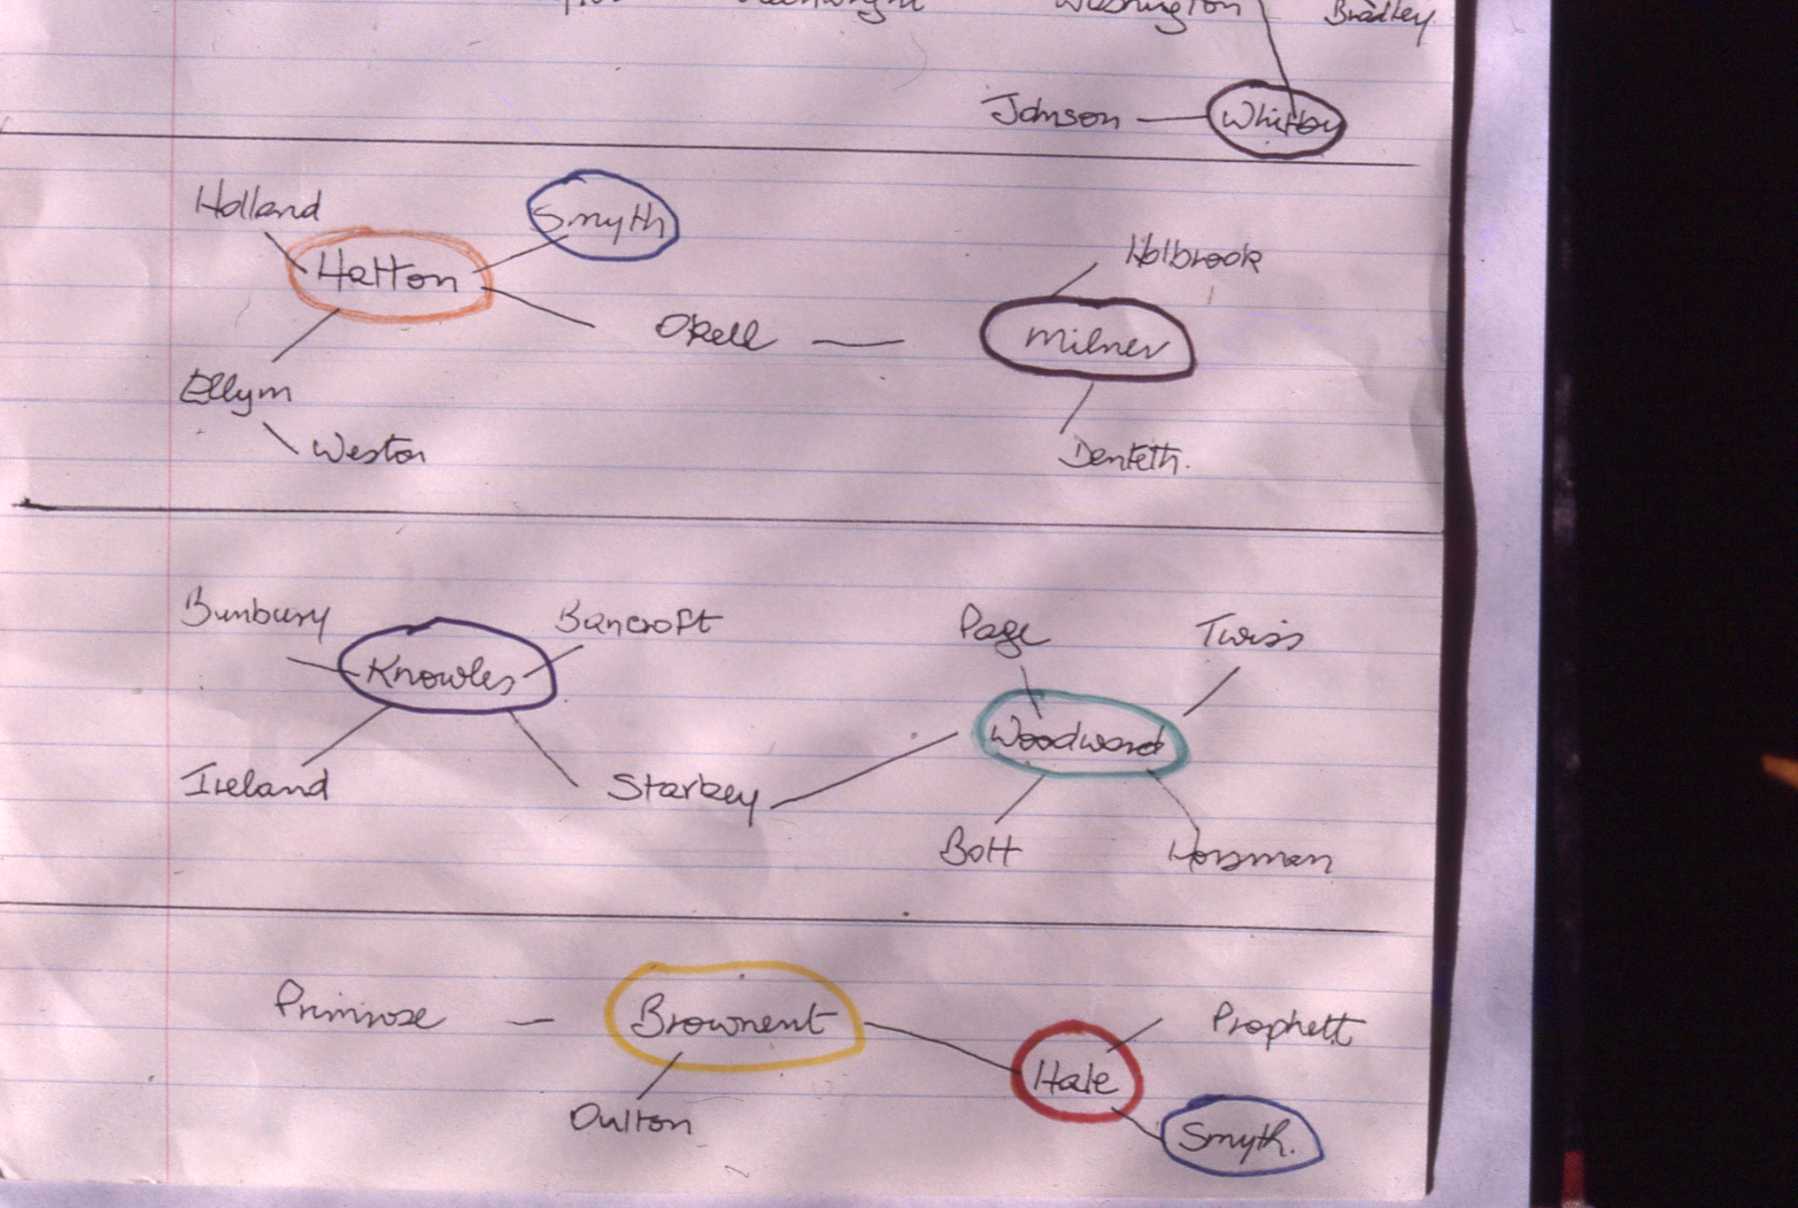 Washington Bradley
Johnson Whitby
Holland Smyth
Hatton Holbrook
Okell Milner
Ellym
Weston Denteth.
Bunbury Bancroft Page Twiss
Knowles Woodward
Ireland Starkey
Bott Horsman
Primrose Brownent Prophett
Hale
Oulton Smyth.